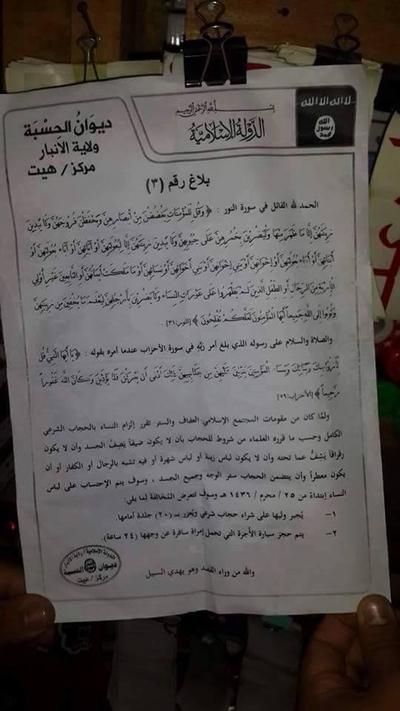 لا اله الا الله
الله
رسول
محمد
الدولة الإسلامية
ديوان الحسبة
ولاية الانبار
مركز / هيت
بلاغ رقم (٣)
الحمد لله القائل في سورة النور : ﴿ وَقُل لِّلْمُؤْمِنَاتِ يَغْضُضْنَ مِنْ أَبْصَارِهِنَّ وَيَحْفَظْنَ فُرُوجَهُنَّ وَلَا يُبْدِينَ
زِينَتَهُنَّ إِلَّا مَا ظَهَرَ مِنْهَا وَلْيَضْرِبْنَ بِخُمُرِهِنَّ عَلَى جُيُوبِهِنَّ وَلَا يُبْدِينَ زِينَتَهُنَّ إِلَّا لِبُعُولَتِهِنَّ أَوْ آبَائِهِنَّ أَوْ آبَاء بُعُولَتِهِنَّ أَوْ
أَبْنَائِهِنَّ أَوْ أَبْنَاء بُعُولَتِهِنَّ أَوْ إِخْوَانِهِنَّ أَوْ بَنِي إِخْوَانِهِنَّ أَوْ بَنِي أَخَوَاتِهِنَّ أَوْ نِسَائِهِنَّ أَوْ مَا مَلَكَتْ أَيْمَانُهُنَّ أَوِ التَّابِعِينَ غَيْرِ أُوْلِي
الْإِرْبَةِ مِنَ الرِّجَالِ أَوِ الطِّفْلِ الَّذِينَ لَمْ يَظْهَرُوا عَلَى عَوْرَاتِ النِّسَاء وَلَا يَضْرِبْنَ بِأَرْجُلِهِنَّ لِيُعْلَمَ مَا يُخْفِينَ مِن زِينَتِهِنَّ
وَتُوبُوا إِلَى اللَّهِ جَمِيعاً أَيُّهَا الْمُؤْمِنُونَ لَعَلَّكُمْ تُفْلِحُونَ ﴾ [النور:٣١]
والصلاة والسلام على رسوله الذي بلغ امر ربِّه في سورة الأحزاب عندما أمره بقوله : ﴿ يَا أَيُّهَا النَّبِيُّ قُل
لِّأَزْوَاجِكَ وَبَنَاتِكَ وَنِسَاء الْمُؤْمِنِينَ يُدْنِينَ عَلَيْهِنَّ مِن جَلَابِيبِهِنَّ ذَلِكَ أَدْنَى أَن يُعْرَفْنَ فَلَا يُؤْذَيْنَ وَكَانَ اللَّهُ غَفُوراً
رَّحِيماً ﴾ [الأحزاب:٥٩]
ولمّا كان من مقومات المجتمع الإسلامي العفاف والستر تقرر إلزام النساء بالحجاب الشرعي
الكامل وحسب ما قرره العلماء من شروط للحجاب بان لا يكون ضيقاً يَصِفُ الجسد وأن لا يكون
رقراقاً يَشِفُّ عما تحته وأن لا يكون لباس زينة او لباس شهرة او فيه تشبه بالرجال او الكفار أو أن
يكون معطراً وأن يتضمن الحجاب ستر الوجه وجميع الجسد ، وسوف يتم الإحتساب على لباس
النساء إبتداءً من ٢٥ / محرم / ١٤٣٦ هـ وسوف تتعرض المُخالفة لما يلي
١- يُجبر وليها على شراء حجاب شرعي ويُعزر بـ (٢٠) جلدة أمامها.
٢- يتم حجز سيارة الأجرة التي تحمل إمرأة سافرة عن وجهها (٢٤ ساعة).
والله من وراء القصد وهو يهدي السبيل
ديوان الحسبة
مركز / هيت